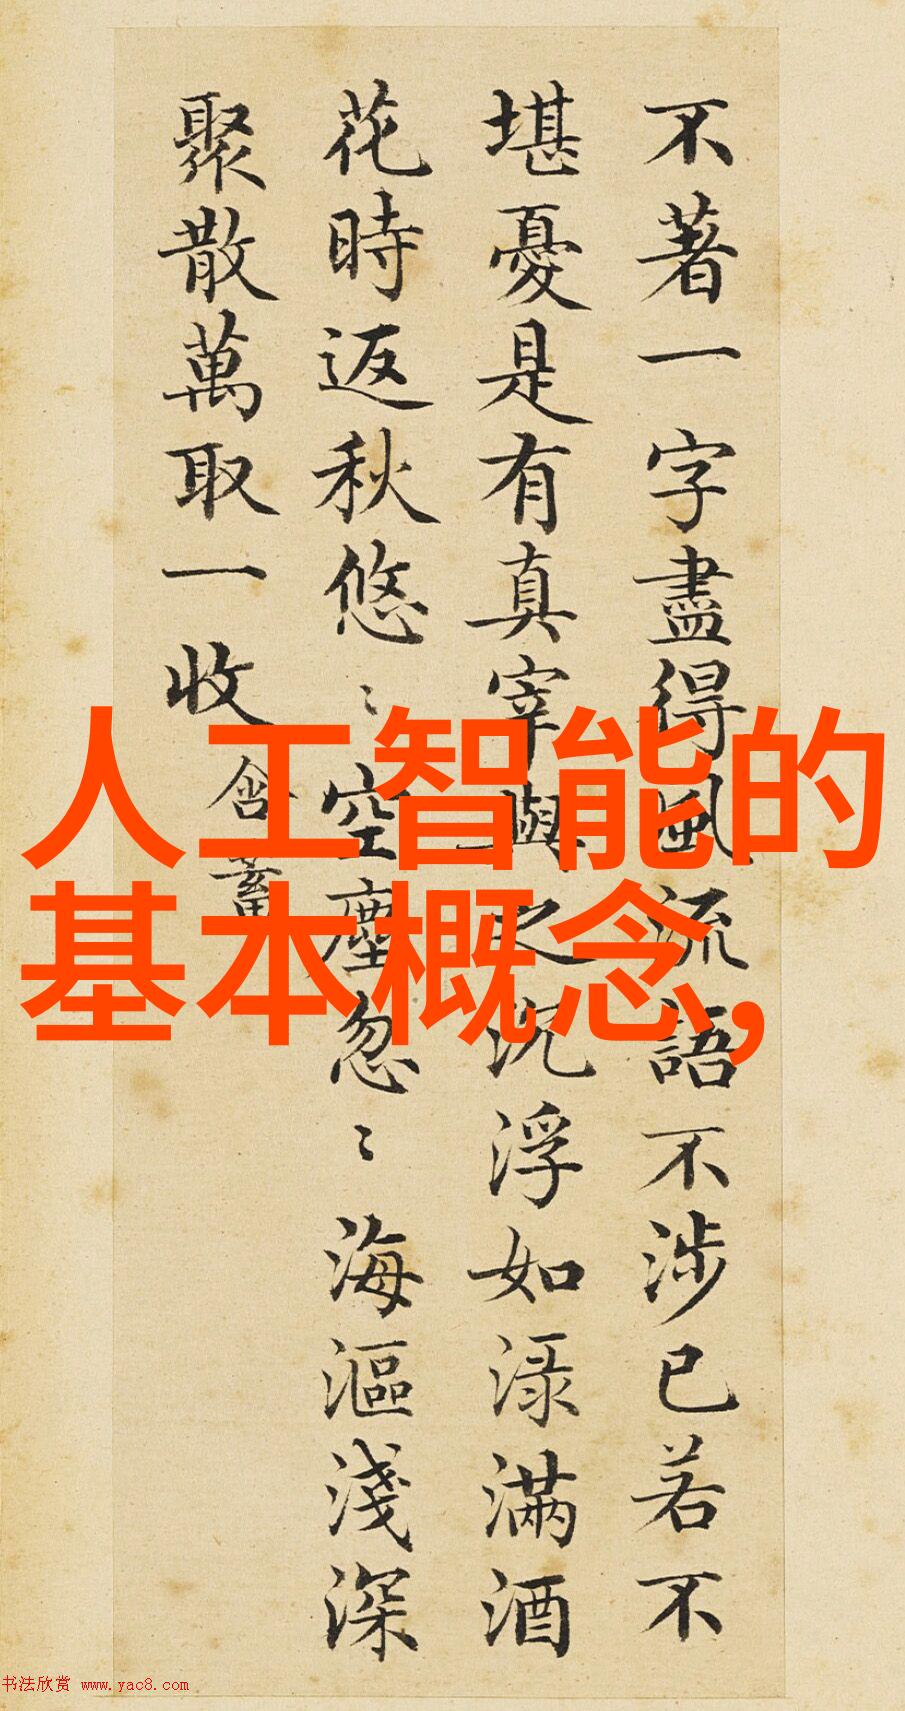 人工智能的
基本概念,
不著一字盡得風流語不涉已若不
堪憂是有真宰與之沉浮如渌滿酒
花時返秋悠〻空塵忽〻海漚淺深
聚散萬取一收 含蓄
书法欣赏 www.yac8.com